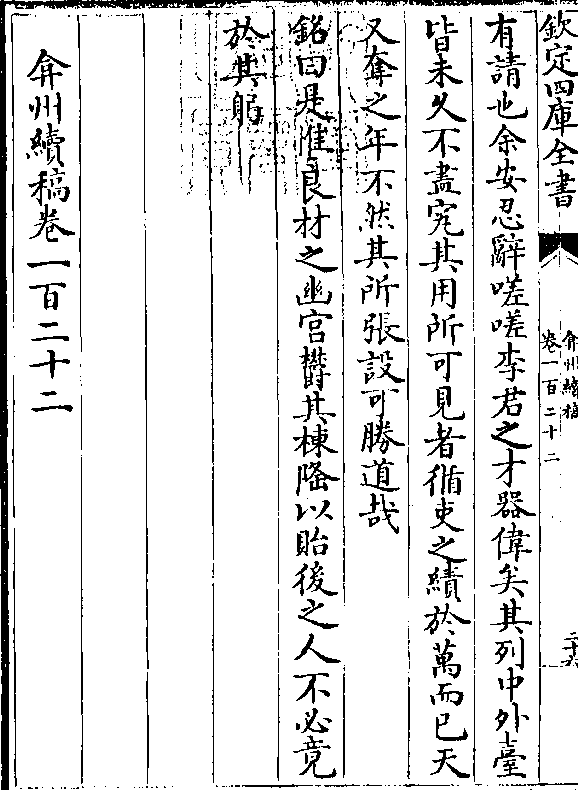 欽定四庫全書
弇州續稿
卷一百二十二
二十六
有請也余安忍辭嗟嗟李君之才器偉矣其列中外臺
皆未久不盡究其用所可見者循吏之績於萬而已天
又奪之年不然其所張設可勝道哉
銘曰是惟良材之幽宫欝其棟隆以貽後之人不必竟
於其躬
弇州續稿卷一百二十二